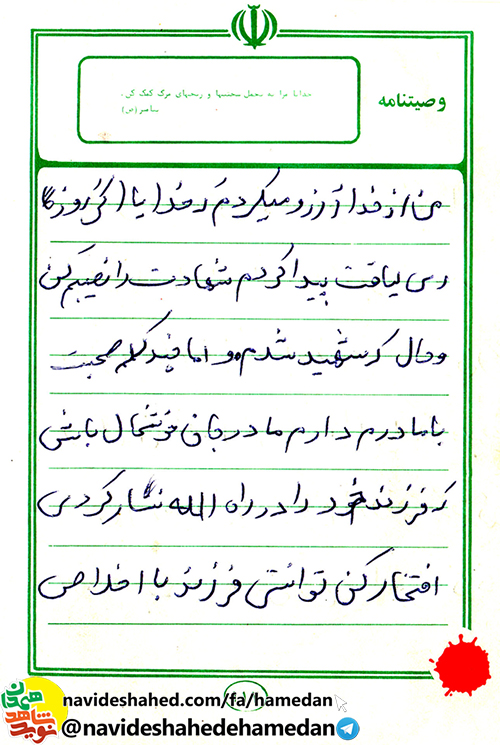 وصیتنامه
خدایا مرا به تحمل سختیها و رنجهای مرگ کمک کن.
پیامبر (ص)
من از خدا آرزو میکردم که خدایا اگر روزگا
ری لیاقت پیدا کردم شهادت را نصیبم کن
و حال که شهید شدم و اما چند کلمه صحبت
با مادرم دارم مادر جان خوشحال باش
که فرزند خود را در راه الله نثار کردی
افتخار کن توانستی فرزند با اخلاص
۱
navideshahed.com/fa/hamedan
@navideshahedehamedan
نوید شاهد همدان